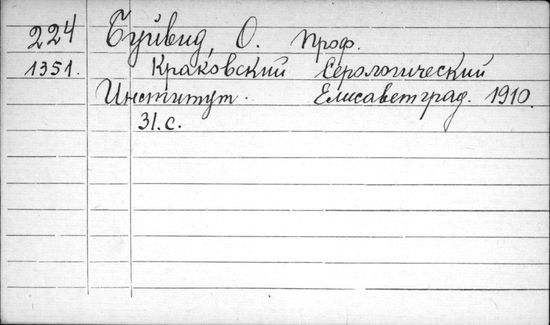 224 Буйвид, О. Проф.
1351. Краковский Серологический
Институт. Елисаветград. 1910.
31.с.